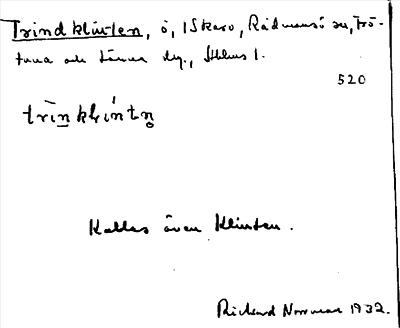 Trindklinten, ö, i Skavö, Rådmansö sn, Frö-
tuna och Länna skg., Sthlms l.
520
trìnkli̇́ntn̥
Kallas även Klinten.
Rickard Norrman 1932.